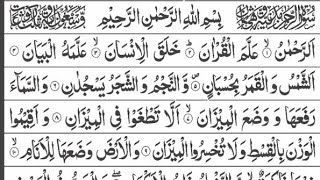 بِسْمِ اللهِ الرَّحْمٰنِ الرَّحِيْمِ
اَلرَّحْمٰنُ ۙ۝۱ عَلَّمَ الْقُرْاٰنَ ؕ۝۲ خَلَقَ الْاِنْسَانَ ۙ۝۳ عَلَّمَهُ الْبَيَانَ ۝۴
اَلشَّمْسُ وَ الْقَمَرُ بِحُسْبَانٍ ۪۝۵ وَّ النَّجْمُ وَ الشَّجَرُ يَسْجُدٰنِ ۝۶ وَ السَّمَآءَ
رَفَعَهَا وَ وَضَعَ الْمِيْزَانَ ۙ۝۷ اَلَّا تَطْغَوْا فِى الْمِيْزَانِ ۝۸ وَ اَقِيْمُوا
الْوَزْنَ بِالْقِسْطِ وَ لَا تُخْسِرُوا الْمِيْزَانَ ۝۹ وَ الْاَرْضَ وَضَعَهَا لِلْاَنَامِ ۙ۝۱۰